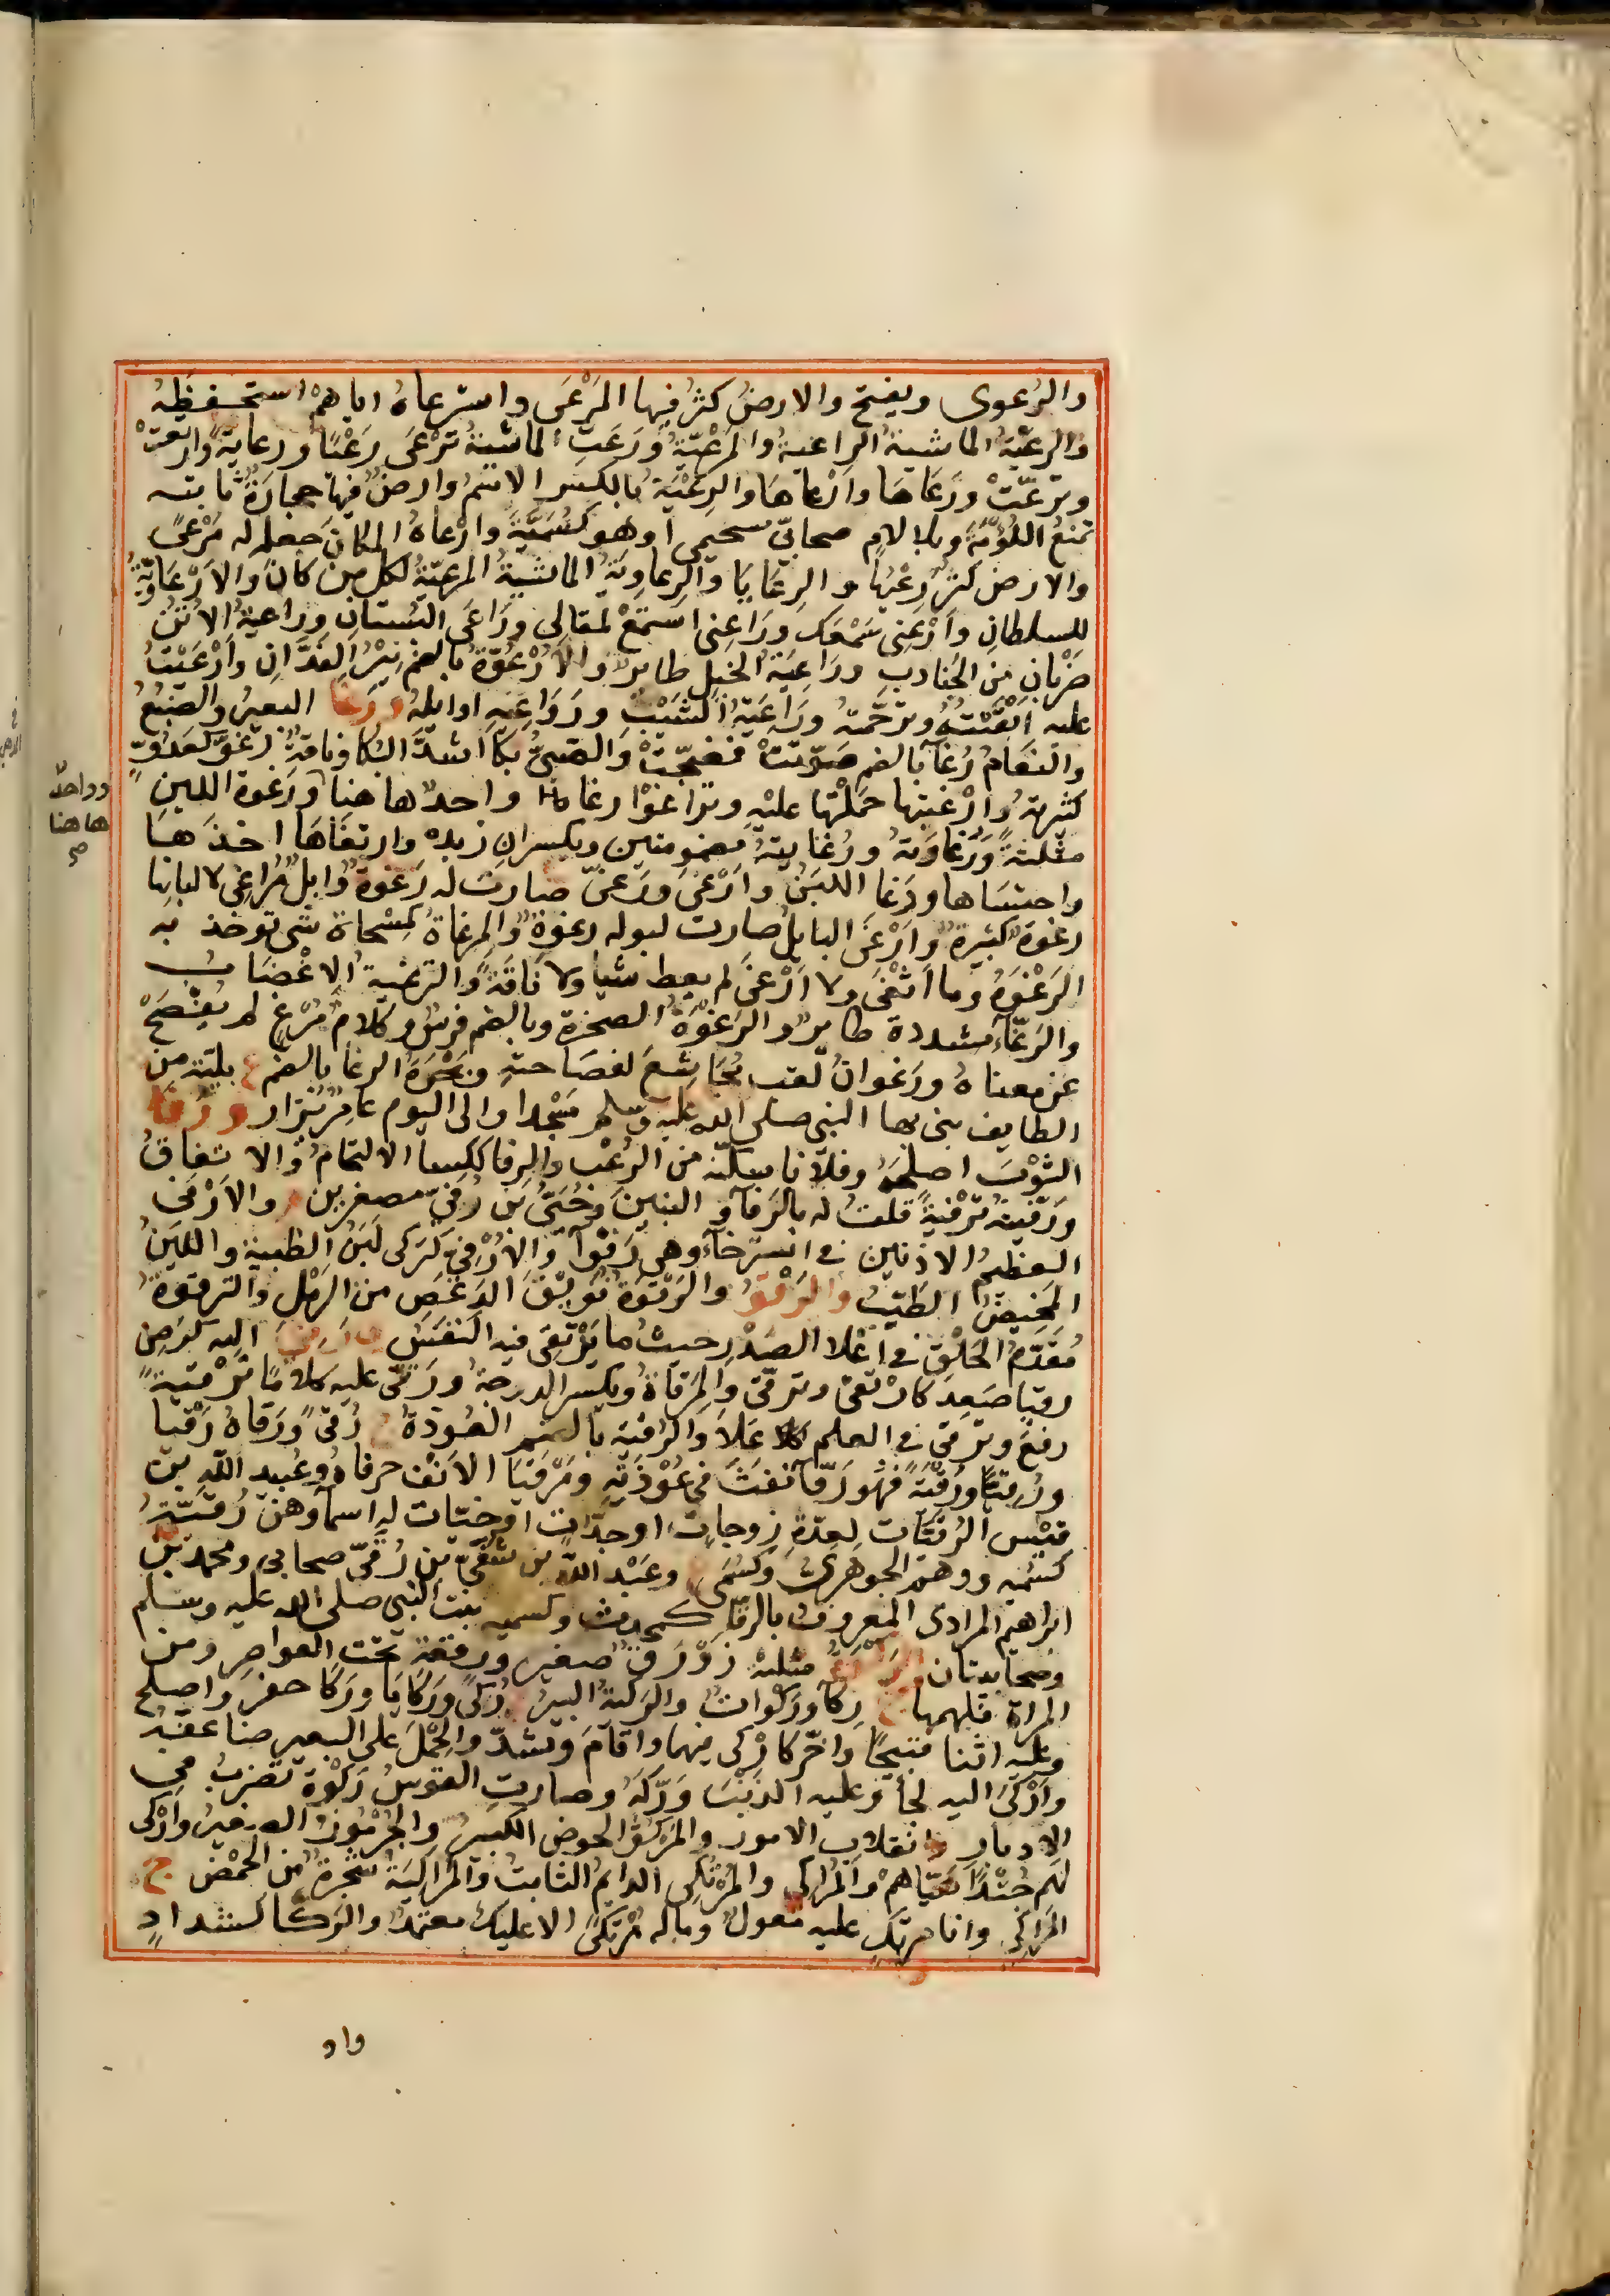 والرُعوى ويفتح والارضُ كثُر فيها المَرْعَى واسترعاهُ اياهم استحفظهُ
والرعيّةُ الماشيةُ الراعيةُ والمَرْعِيّةُ وَرَعَتِ الماشيةُ تَرْعَى رَعْيًا ورعايةً وارتعتْ
وترعّتْ ورَعَاهَا وأرْعاهَا والرِعْيَةُ بالكسر الاسمُ وارضٌ فيها حجارَةٌ ناتئه
تمنعُ اللُؤمَةَ وبلا لامٍ صحابيّ سحيمى اوهو كسُمَيَّةَ وارْعاهُ المكانَ جعله له مَرْعىً
والارضُ كثُر رِعْيُها والرِعَايَا والرعاوِيَةُ الماشيةُ المرعيّةُ لكل من كانَ والارْعَاوِيّةُ
للسلطانِ وأرْعِنى سَمْعَك ورَاعِنى استمَعْ لمقالى ورَاعَى البُستانِ وراعيةُ الاتنِ
ضرْبانِ من الجنادبِ وراعِيَةُ الخيلِ طايرٌ والأرْعُوّةُ بالضم نِيْرُ الفَدَّانِ وأرْعَيْتُ
عليه ابْقَيْتُهُ وترَحَّمتهُ ورَاعِيَةُ الشَيْبِ ورَوَاعِيَهِ اوايلهُ ورَغا البعيرُ والضبُعُ
والنعَامُ رُغآ بالضم صَوّتتْ فضجّتْ والصَبىُّ بكا اشدَّ البُكا وناقةٌ رَغُوّ كعَدُوٍّ
كثيرتهُ وارْغيتها حمَلْتها عليهِ وتراغَوْا رغا واحدٌ هاهنا ورَغوة اللبن
مثلثةً ورُغاوَتهُ ورُغايتهُ مضمومتين ويكسران زبده وارتغَاهَا اخذَهَا
واحتسَاها ورَغا اللبَنُ وأَرْغىَ ورَغىّ صارت له رَغوةٌ وابلٌ مُراغى لالبانِها
رغوَة كثيرة وأرْغَى البايلُ صارت لبوله رغوة والمِرغاةُ كمِسْحاة شى توخذ به
الرَغْوَةُ وما اثْغَى ولا ارْغىَ لم يعط شيا ولا نَاقَةً والترغيةُ الاغْضَابُ
والرَغّاءُ مشددة طايرٌ والرَغوَةُ الصخرة وبالضم فرسٌ وكلامٌ مُرْغٍ لم يُفْصِحْ
عن معناهُ ورَغوانُ لقبُ مُجَاشعٍ لفصَاحتهِ وبَحْرَةُ الرغا بالضم ع بليّة من
الطايف بنى بها النبى صلى الله عليه وسلم مَسْجدا والى اليوم عامِرٌ يُزار ورفا
الثَوْبَ اصلحَهُ وفلانا سكّنه من الرُعْب والرفا ككسا الالتحامُ والاتفاقُ
ورَفّيتهُ تَرْفِيةً قلتُ له بالرَفآ والبنينَ وحُيَىُّ بن رُفىّ مصغرين والارْفى
العظيمُ الاذنين فى استرْخآء وهى رَفْوآ والارْفىُ كتُركى لَبَنُ الظبيةِ واللبَنُ
المخيضُ الطيّبُ والرَقْوُ والرَقْوَةُ فُويْقَ الدَعْصِ من الرَمْلِ والترقوَةُ
مُقدّمُ الحَلْقِ فى أعْلا الصَدْرِ حيثُ ما يَرْتقى فيه النفَسُ ورَقِىَ اليه كرَضِىَ
رقيا صَعِدَ كارْتقى وترقّى والمَرَقاةُ ويكسر الدرجةُ ورَقّى عليه كلامًا تَرْقيَةً
رفعَ وترقى فى العلم عَلاَ والرُقيَة بالضم العُوذةُ ج رُقىً ورَقاهُ رَقْيا
ورُقِيًّا ورُقْيَةً فهُو رَقّآ نفثَ فى عُوْذَتِهِ ومَرْقيَا الانْف حرفاهُ وعُبيد الله بن
قيْس الرُقيّات لِعدّةِ زوجاتٍ او جدّات اوحبّات له اسمآوهنّ رُقيّةُ
كسُميّه ووهَم الجوهرىُّ وكسُمَى وعَبْد الله بن شُقىّ بن رُقىّ صحابى ومحمد بن
ابراهيم المرادى المعروفُ بالرقّا كمحدث وكسميه بنت النبى صلى الله عليه وسلم
وصحابيتان والرَكوَةُ مثلثة زَوْرَقٌ صغير ورقعة تحت العواصِر ومن
المراة قلهمها ج رِكآ ورَكَواتٌ والركيةُ البيرُ ج رُكىً ورَكايَا ورَكا حفرَ واصلحَ
وعليه اثنا قبيحًا واخّرَ كارْكى فيهما واقامَ وشدّ والحِمْلَ على البعير ضاعفَهُ
وأرْكى اليه لجأ وعليه الذنْبَ وَرّكَهُ وصارتِ القوسُ رَكوَة تضربُ فى
الادبار وانقلابِ الامور والمَرْكوُّ الحوض الكبيرُ والجُرْمُوزُ الصغيرُ وارْكى
لهم جُنْدًا هيّاهمْ والمُراكى والمُرْتكى الدايمُ الثابتُ والمُراكِيَةُ شجَرةٌ من الحَمْضِ ج
المَراكِى وانا مرتكٍ عليه معولٌ وماله مُرْتكىً الا عليك معتمدٌ والرَكّا كشدادٍ
وواحدٌ
هاهنا
صح
واو